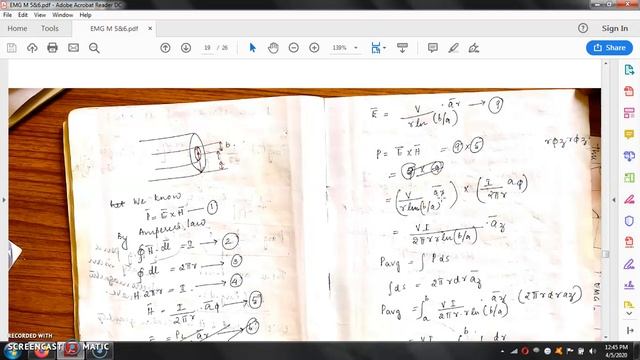 EMG M 5&6.pdf - Adobe Acrobat Reader DC
File Edit View Window Help
Home Tools EMG M 5&6.pdf × Sign In
19 / 26 139% Share
b
a
but We know
P̄ = Ē × H̄ — ①
By Amperes law
∮ H̄ · dl̄ = I — ②
∮ dl = 2πr — ③
H 2πr = I — ④
H̄ = I / 2πr · āφ → ⑤
⑥
Ē = V / r ln(b/a) · ār → ⑨
P = Ē × H̄ = ⑨ × ⑤
= (V / r ln(b/a) ār) × (I / 2πr āφ)
= V I / 2πr r ln(b/a) · āz
Pavg = ∫ P ds
∫ ds = 2πr dr āz
Pavg = ∫ₐᵇ V I / 2πr · r ln(b/a) · āz (2πr dr āz)
rφz rφz
EMG
RECORDED WITH
SCREENCAST MATIC
12:45 PM
4/5/2020